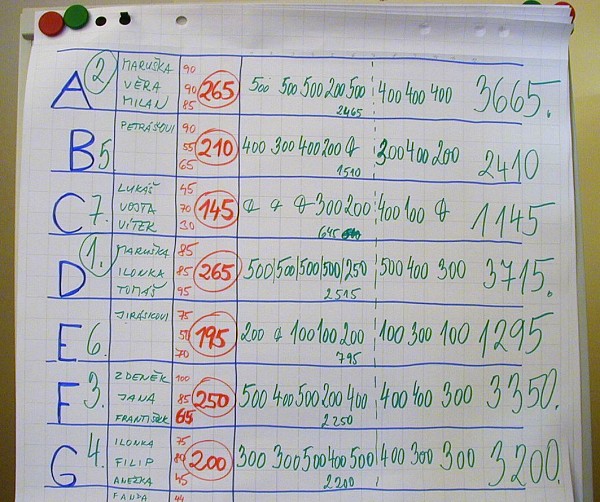 A 2. MARUŠKA 90 265 500 500 500 200 500 400 400 400 3665.
VĚRA 90
MILAN 85 2465
B 5 PETRÁSKOVI 90 210 400 300 400 200 0 300 400 200 2410
55
65 1510
C 7. LUKÁŠ 45 145 0 0 0 300 200 400 100 0 1145
VOJTA 70
VÍTEK 30 645
D 1. MARUŠKA 85 265 500 500 500 500 250 500 400 300 3715.
ILONKA 85
TOMÁŠ 95 2515
E 6. JIRÁSKOVI 75 195 200 0 100 100 200 100 300 100 1295
50
70 795
F 3. ZDENĚK 100 250 500 400 500 200 400 400 400 300 3350.
JANA 85
FRANTIŠEK 65 2250
G 4. ILONKA 75 200 300 300 500 400 500 400 300 300 3200.
FILIP
ANEŽKA 45 2200
FANDA 44